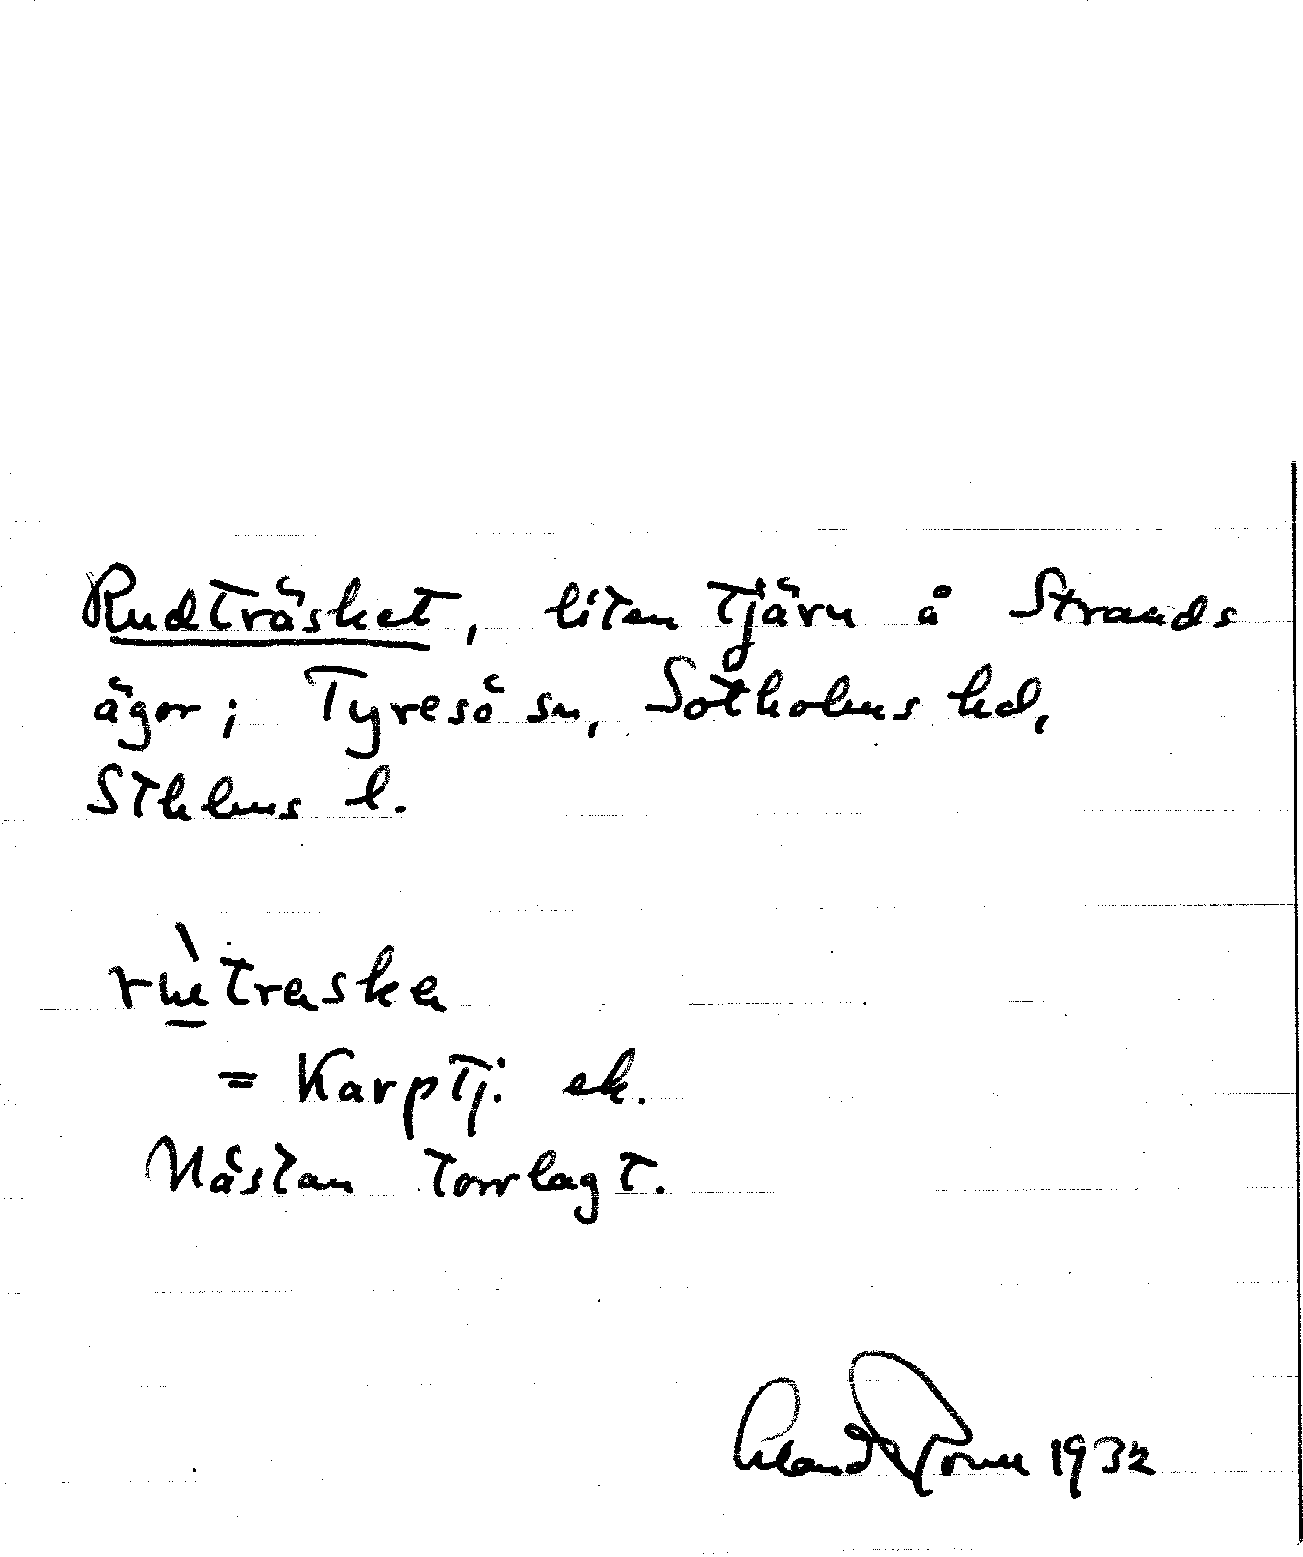 Rudträsket, liten tjärn å Strands
ägor; Tyresö sn, Sotholms hd,
Sthlms l.
= Karptj. ek.
Nästan torrlagt.
1932